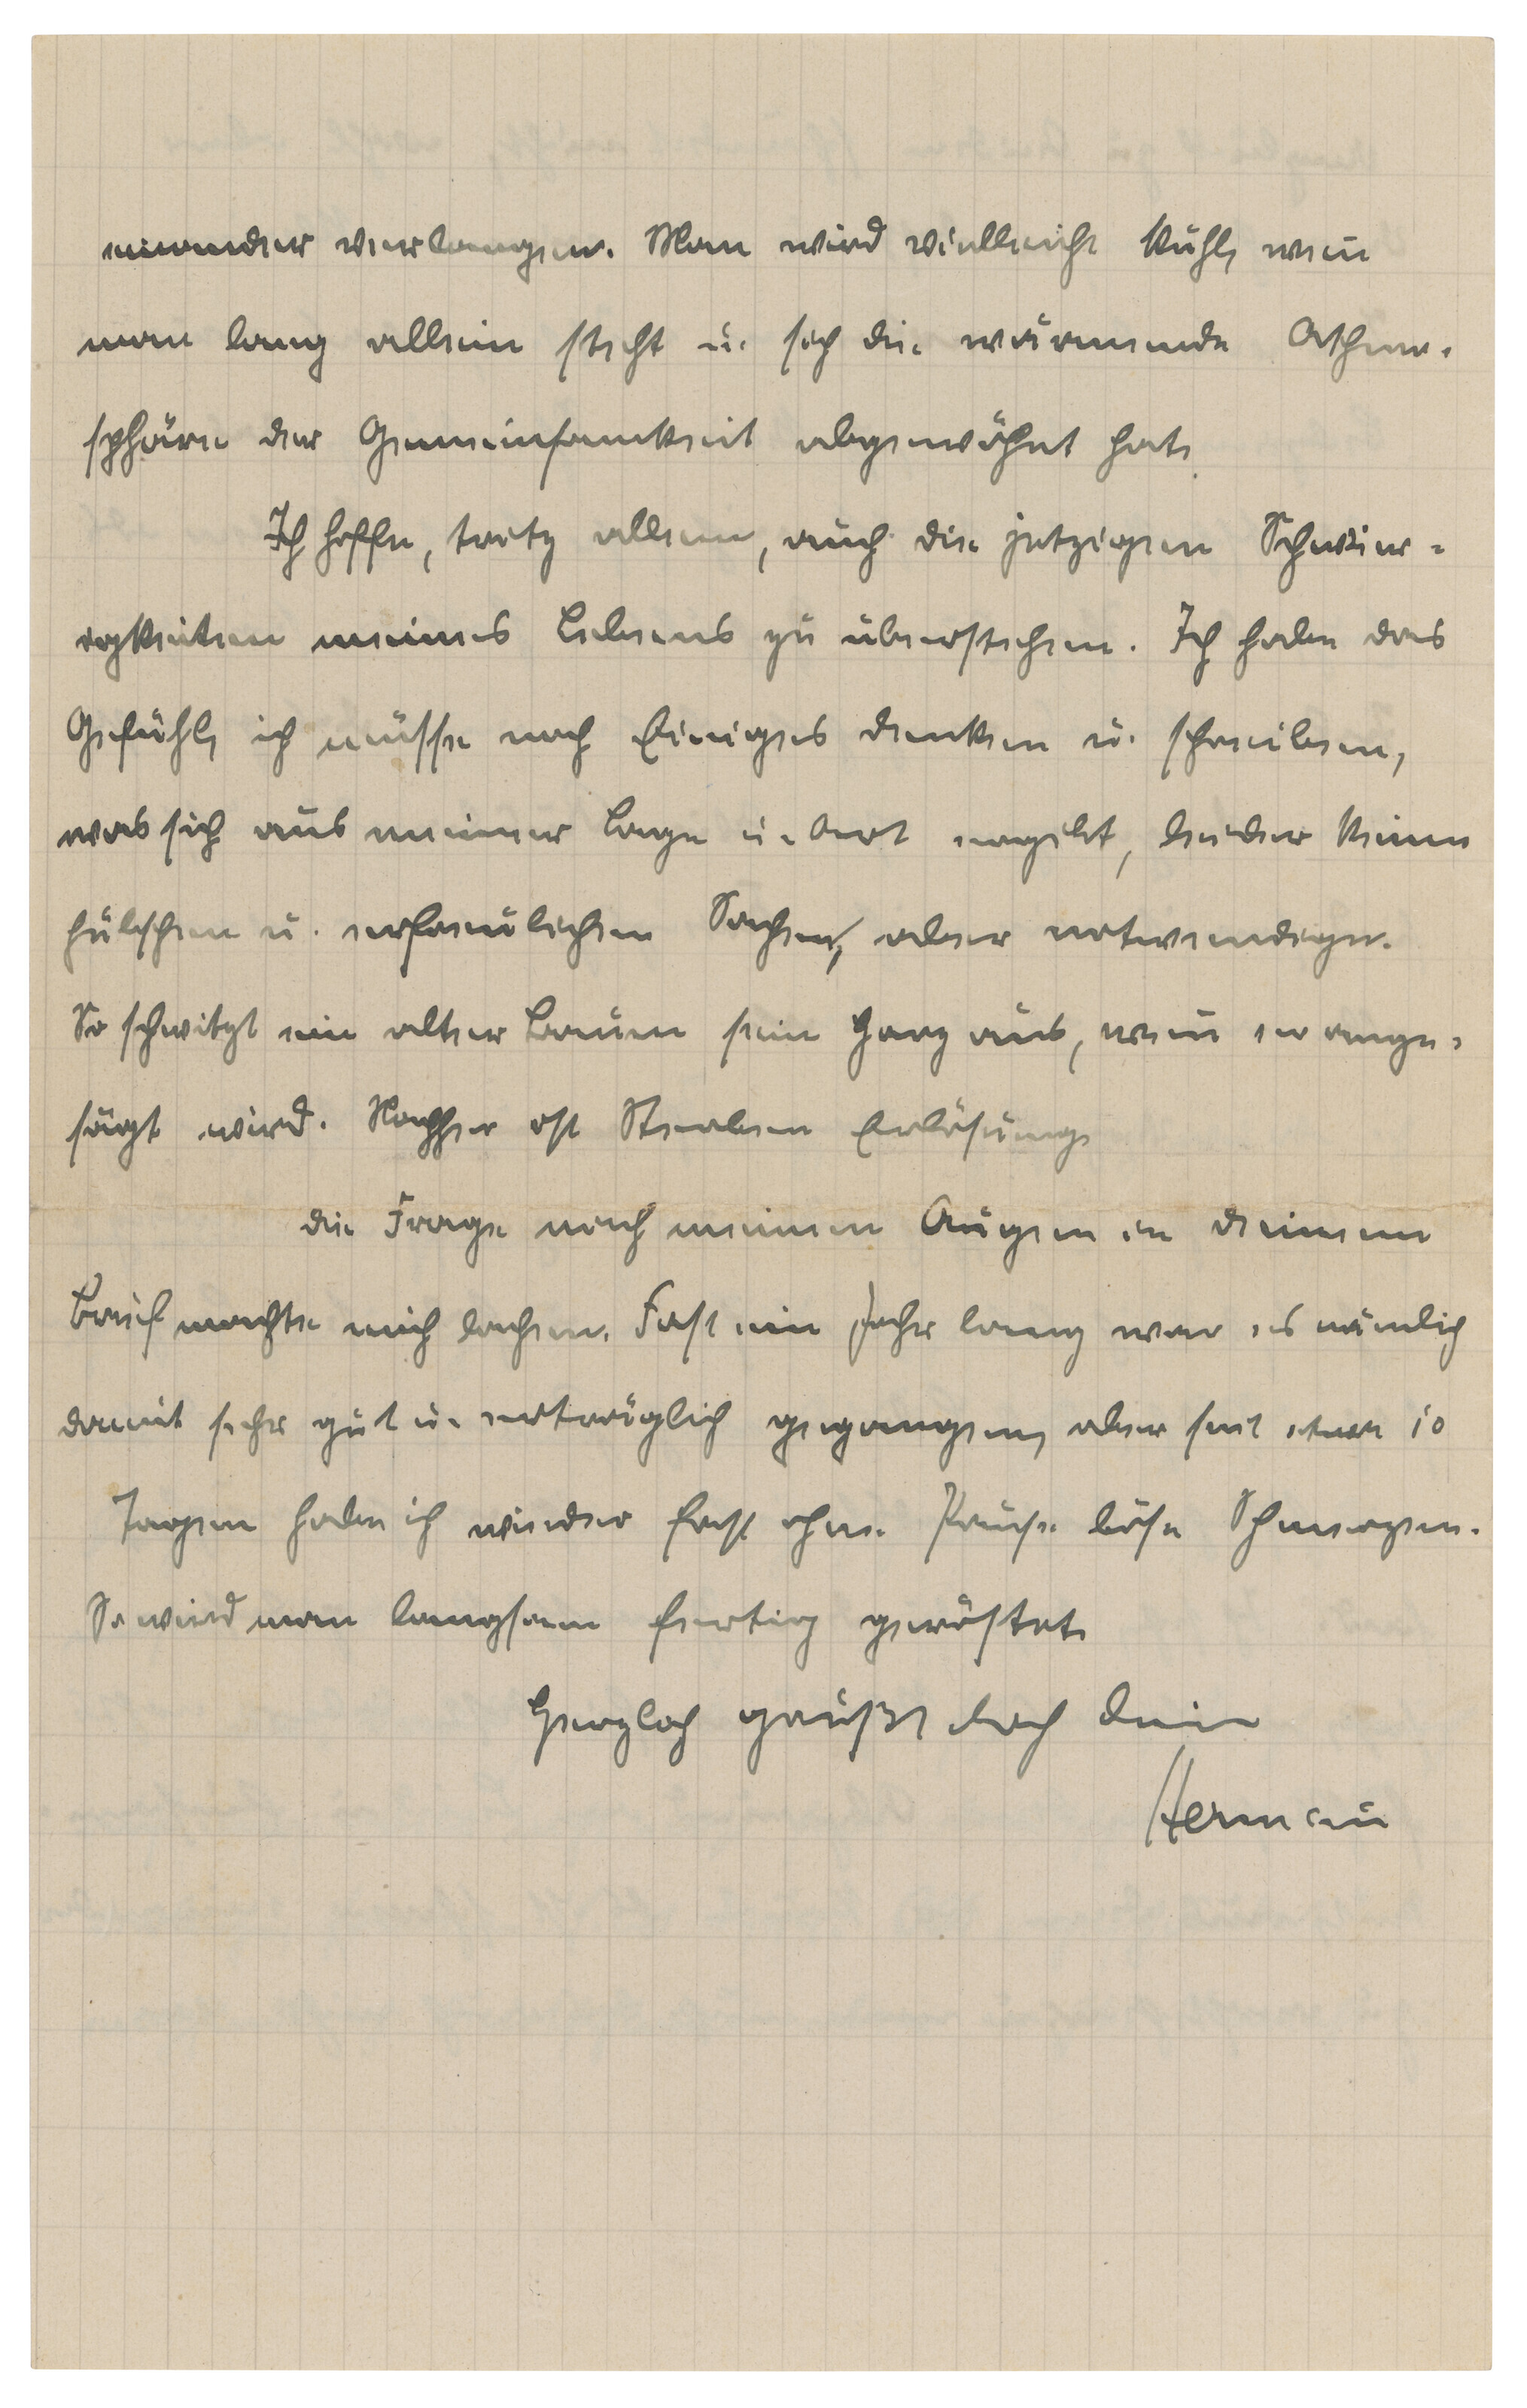 einander verlangen. Man wird vielleicht kühl, weñ
man lang allein steht u. sich die wärmende Athmo-
sphäre der Gemeinsamkeit abgewöhnt hat.
Ich hoffe, trotz allem, auch die jetzigen Schwier-
igkeiten meines Lebens zu überstehen. Ich habe das
Gefühl, ich müsse noch Einiges denken u. schreiben,
was sich aus meiner Lage u. Art ergibt, leider keine
hübschen u. erfreulichen Sachen, aber notwendige.
So schwitzt ein alter Baum sein Harz aus, weñ er ange-
sägt wird. Nachher ist Sterben Erlösung.
Die Frage nach meinen Augen in Deinem
Brief machte mich lachen. Fast ein Jahr lang war es nämlich
damit sehr gut u. erträglich gegangen, aber seit etwa 10
Tagen habe ich wieder fast ohne Pause böse Schmerzen.
So wird man langsam fertig geröstet.
Herzlich grüßt dich dein
Hermañ